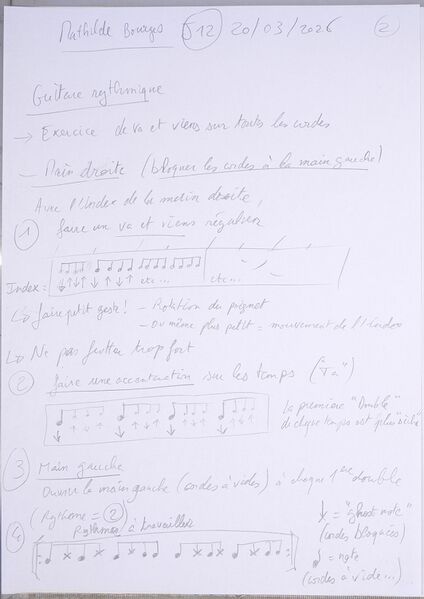 Mathilde Bourges J12 20/03/2026 2
Guitare rythmique
→ Exercice de va et viens sur toutes les cordes
- Main droite (bloquer les cordes à la main gauche)
Avec l'Index de la main droite,
1 faire un va et viens régulier
Index = etc... etc...
↳ faire petit geste! - Rotation du poignet
- Ou même plus petit = mouvement de l'Index
↳ Ne pas frotter trop fort
2 faire une accentuation sur les temps ("Ta")
la première "Double"
de chaque temps est plus
3 Main gauche
Ouvrir la main gauche (cordes à vides) à chaque 1ère double
(Rythme = 2)
Rythmes à travailler
↓ = "ghost note"
(cordes bloquées)
4
♪ = note
(cordes à vide...)